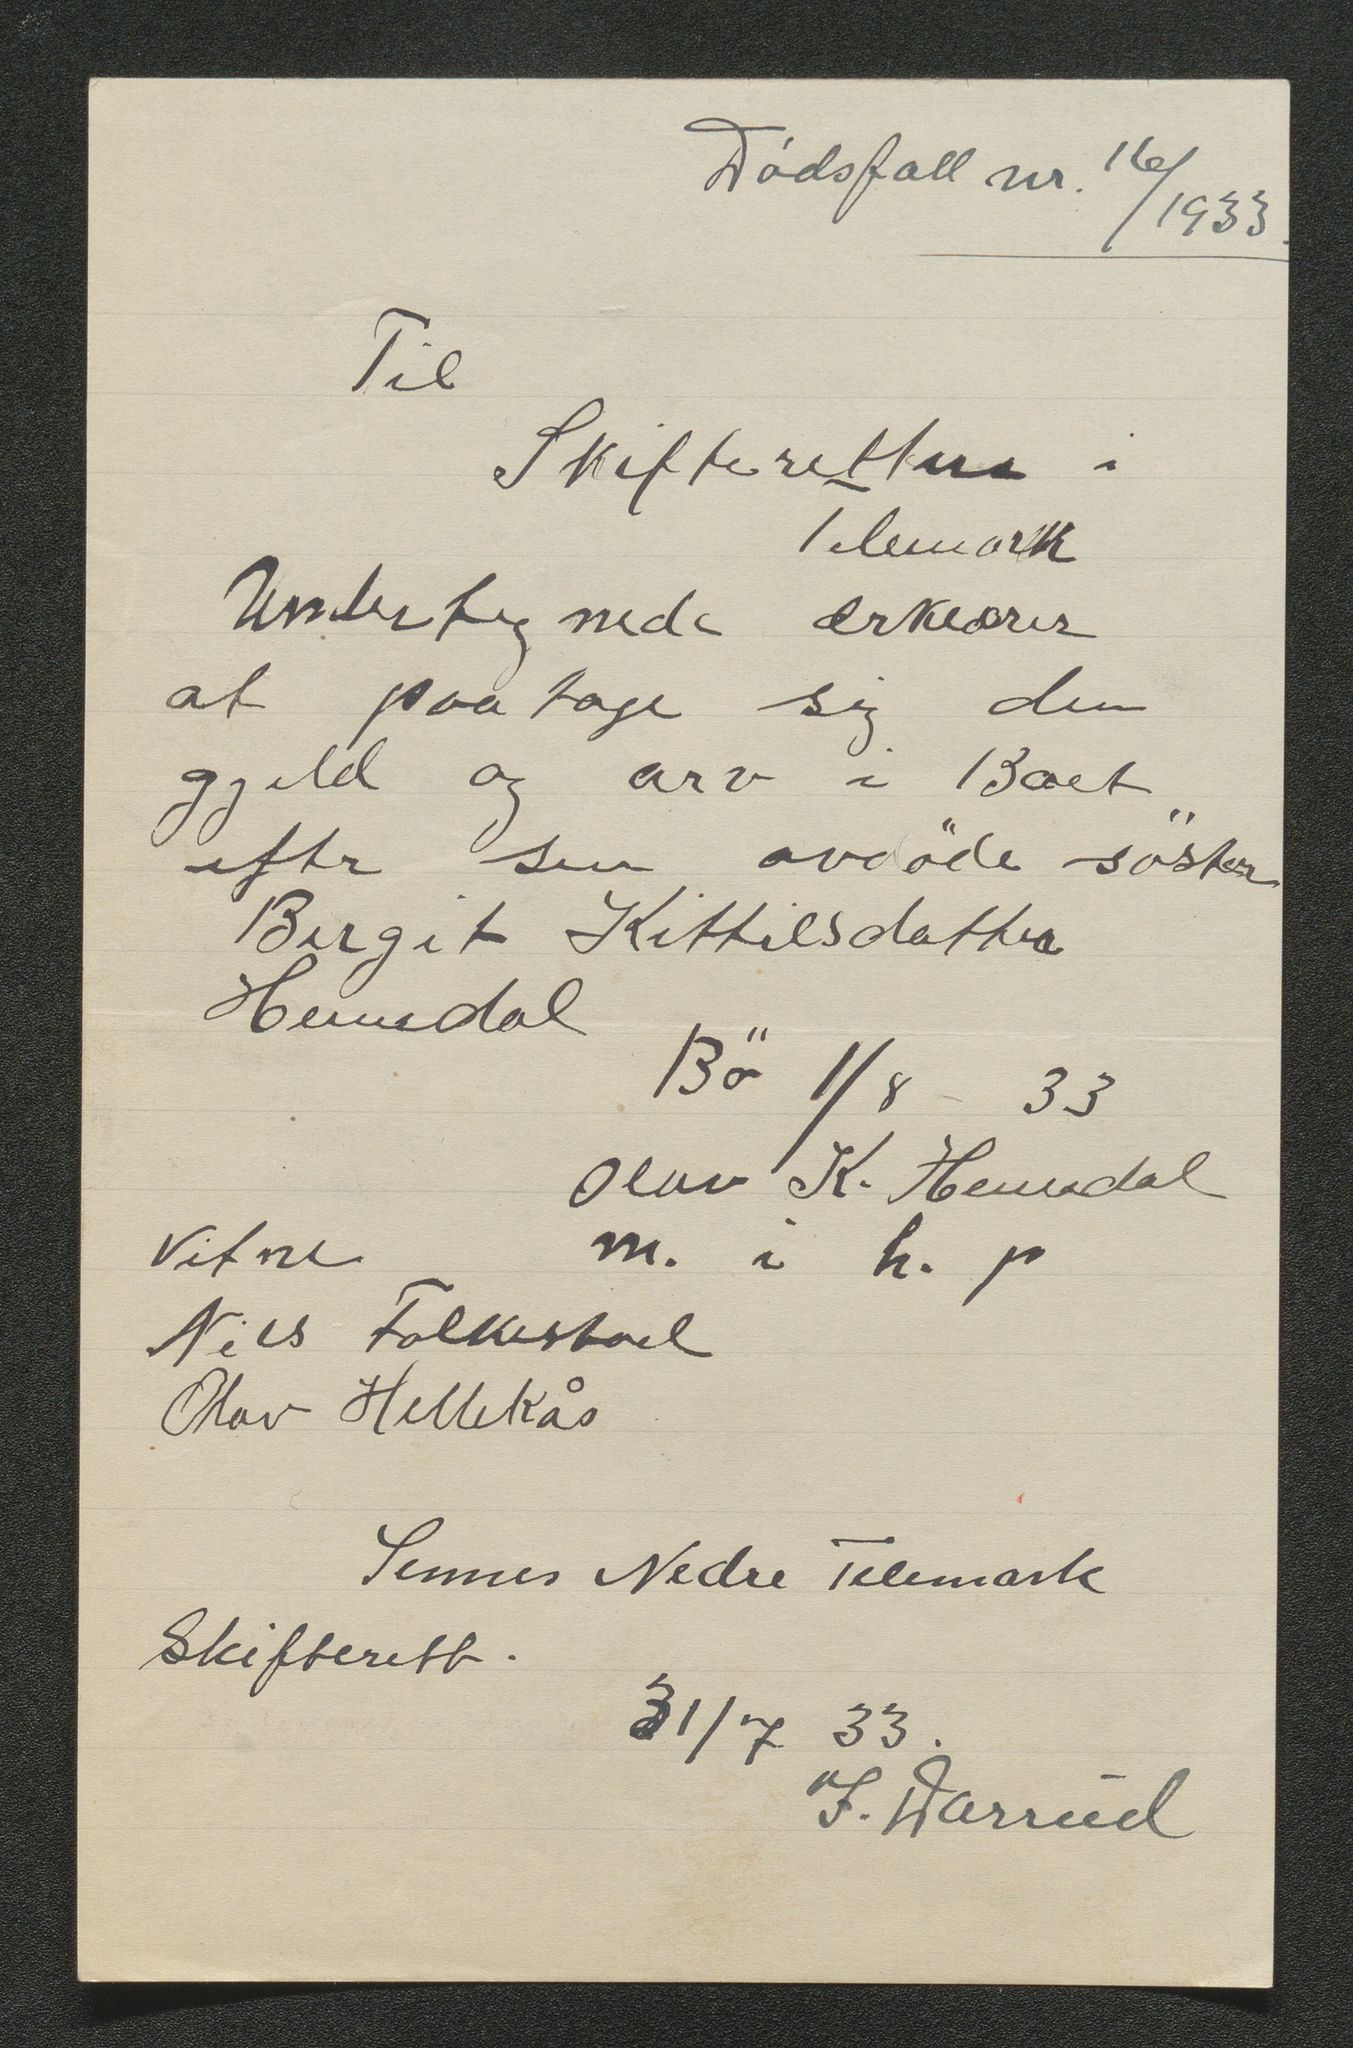 Dødsfall nr. 16/1933.
Til
Skifteretten i
Telemark
Undertegnede erkeærer
at paatage sig den
gjeld og arv i Boet
efter sin avdöde söster
Birgit Kittilsdatter
Hemsdal
Bö 1/8 - 33
Olav K. Hemsdal
Vitne m. i h. p
Nils Folkestad
Olav Hellekås
Sennes Nedre Telemark
Skifterett.
31/7 33.
F. Darrud